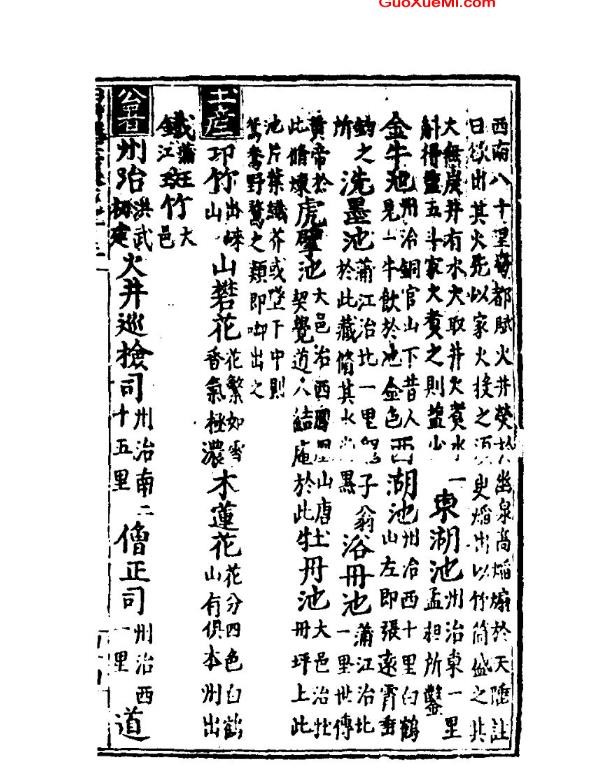 GuoXueMi.com
西南八十里蜀都賦火井熒於幽泉高焰煽於天陲註
曰欲出其火先以家火投之須臾焰出以竹筒盛之其
大無底井有水火取井火煮水一斛得鹽五斗家火煮之則鹽少 東湖池 州治東一里孟柤所鑿
金牛池 州治銅官山下昔人見一牛飲於池金色 西湖池 州治西十里白鶴山左即張遠霄垂
釣之所 洗墨池 蒲江治北一里子翁於此藏簡其水尚黑 浴丹池 蒲江治北一里世傳
黃帝於此脩煉 虎擘池 大邑治西鳳山唐士契覺道人結庵於此 丹池 大邑治北丹坪上此
池片葉纖芥或墜下中則鴛鴦野鶩之類即啣出之
土産 卭竹 出崍山 山礬花 花繁如雪香氣極濃 木蓮花 花分四色白鶴山有俱本州出
鐵 蒲江 斑竹 大邑
公署 州治 洪武初建 火井巡檢司 州治南二十五里 僧正司 州治西一里 道